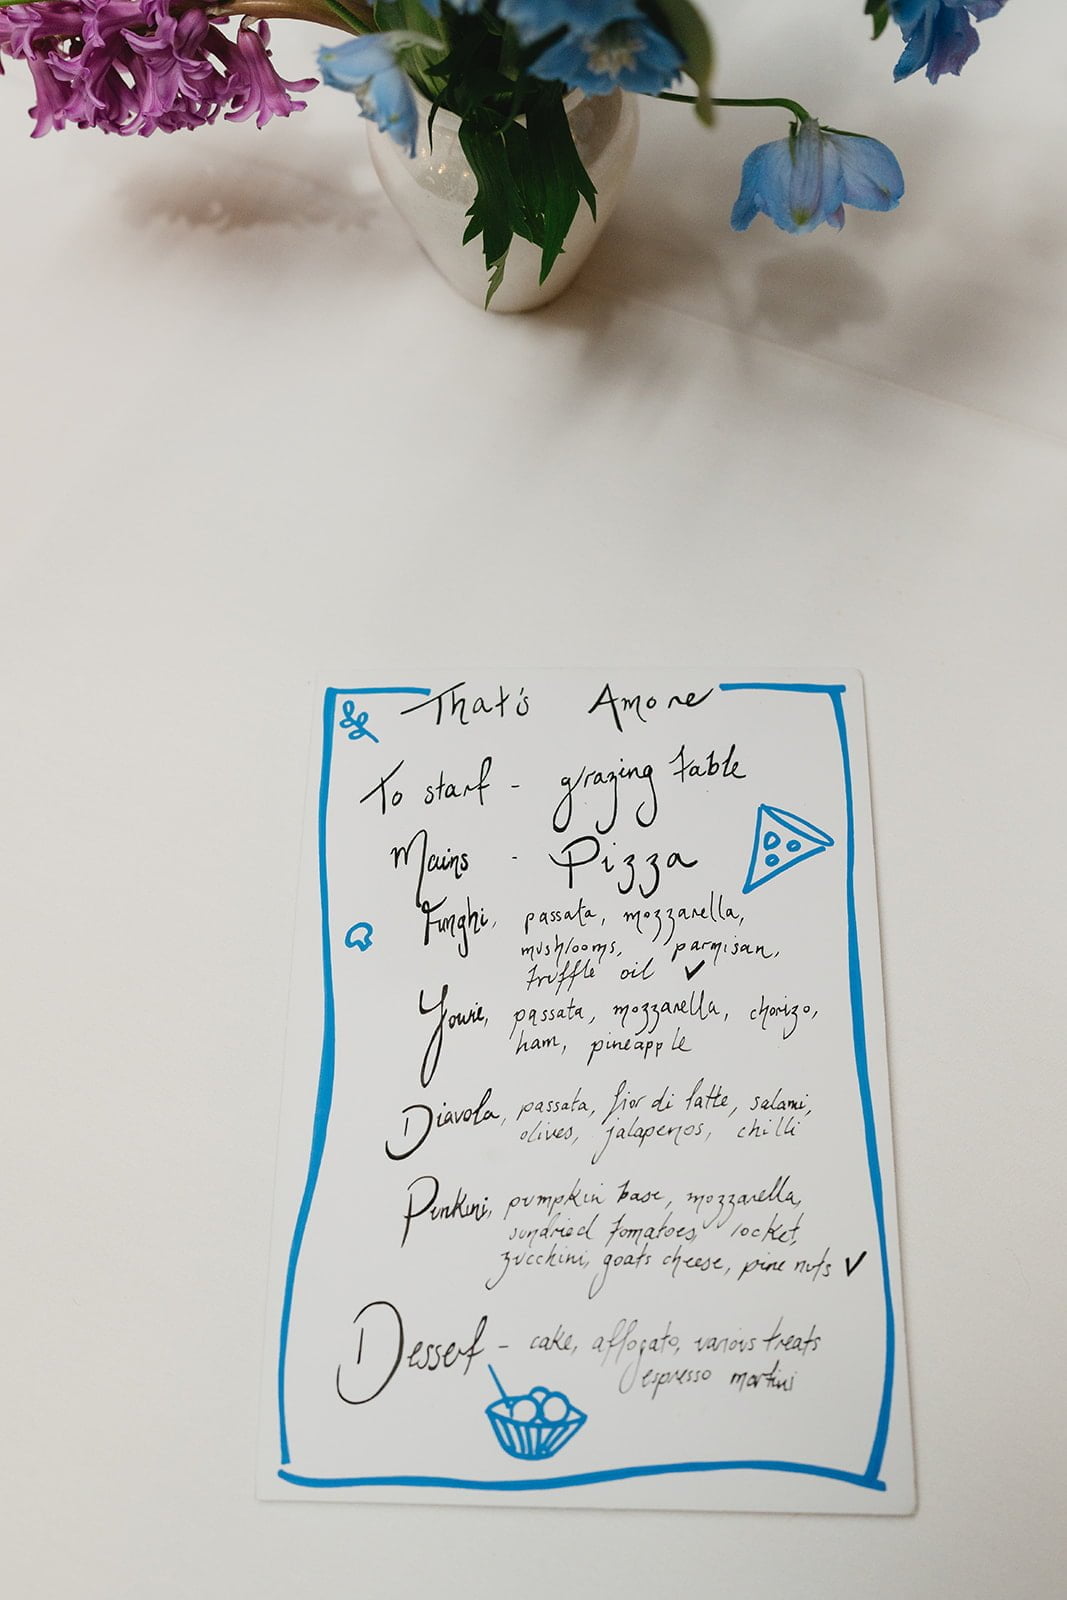 That's Amore
To start - grazing table
Mains - Pizza
Funghi, passata, mozzarella,
mushrooms, parmisan,
truffle oil ✓
Yowie, passata, mozzarella, chorizo,
ham, pineapple
Diavola, passata, fior di latte, salami,
olives, jalapenos, chilli
Punkini, pumpkin base, mozzarella,
sundried tomatoes, rocket,
zucchini, goats cheese, pine nuts ✓
Dessert - cake, affogato, various treats
espresso martini